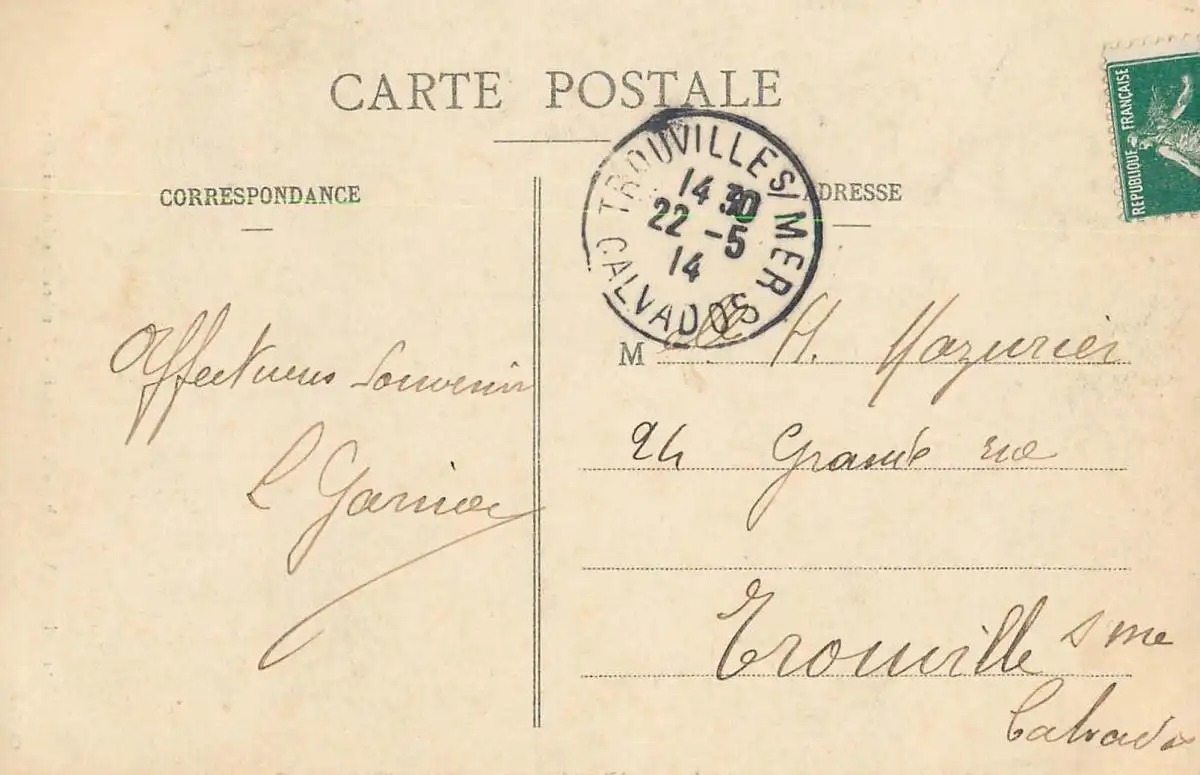 CARTE POSTALE
CORRESPONDANCE
ADRESSE
REPUBLIQUE FRANÇAISE
TROUVILLE S/MER
14 30
22 -5
14
CALVADOS
Affectueux Souvenir
L Garnier
M lle H. Mazurier
24 Grande rue
Trouville s me
Calvados